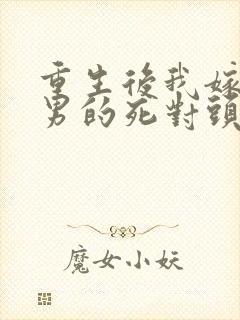 重生後我嫁
男的死對頭
魔女小妖